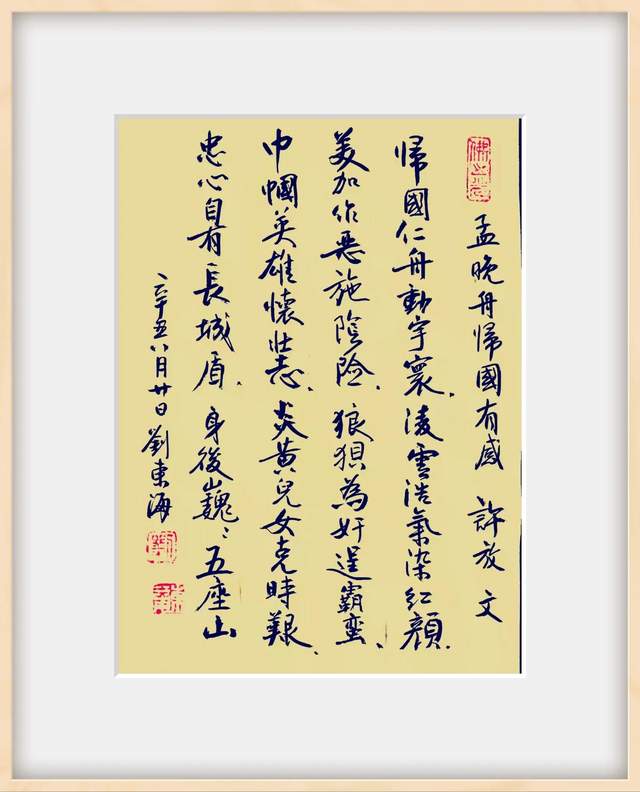 孟晚舟歸國有感 許放 文
歸國仁舟動宇寰、凌雲浩氣染紅顏、
美加作惡施陰險、狼狽為奸逞霸蠻、
巾幗英雄懷壯志、炎黃兒女克時艱、
忠心自有長城盾、身後巍々五座山
辛丑八月廿日 劉東海